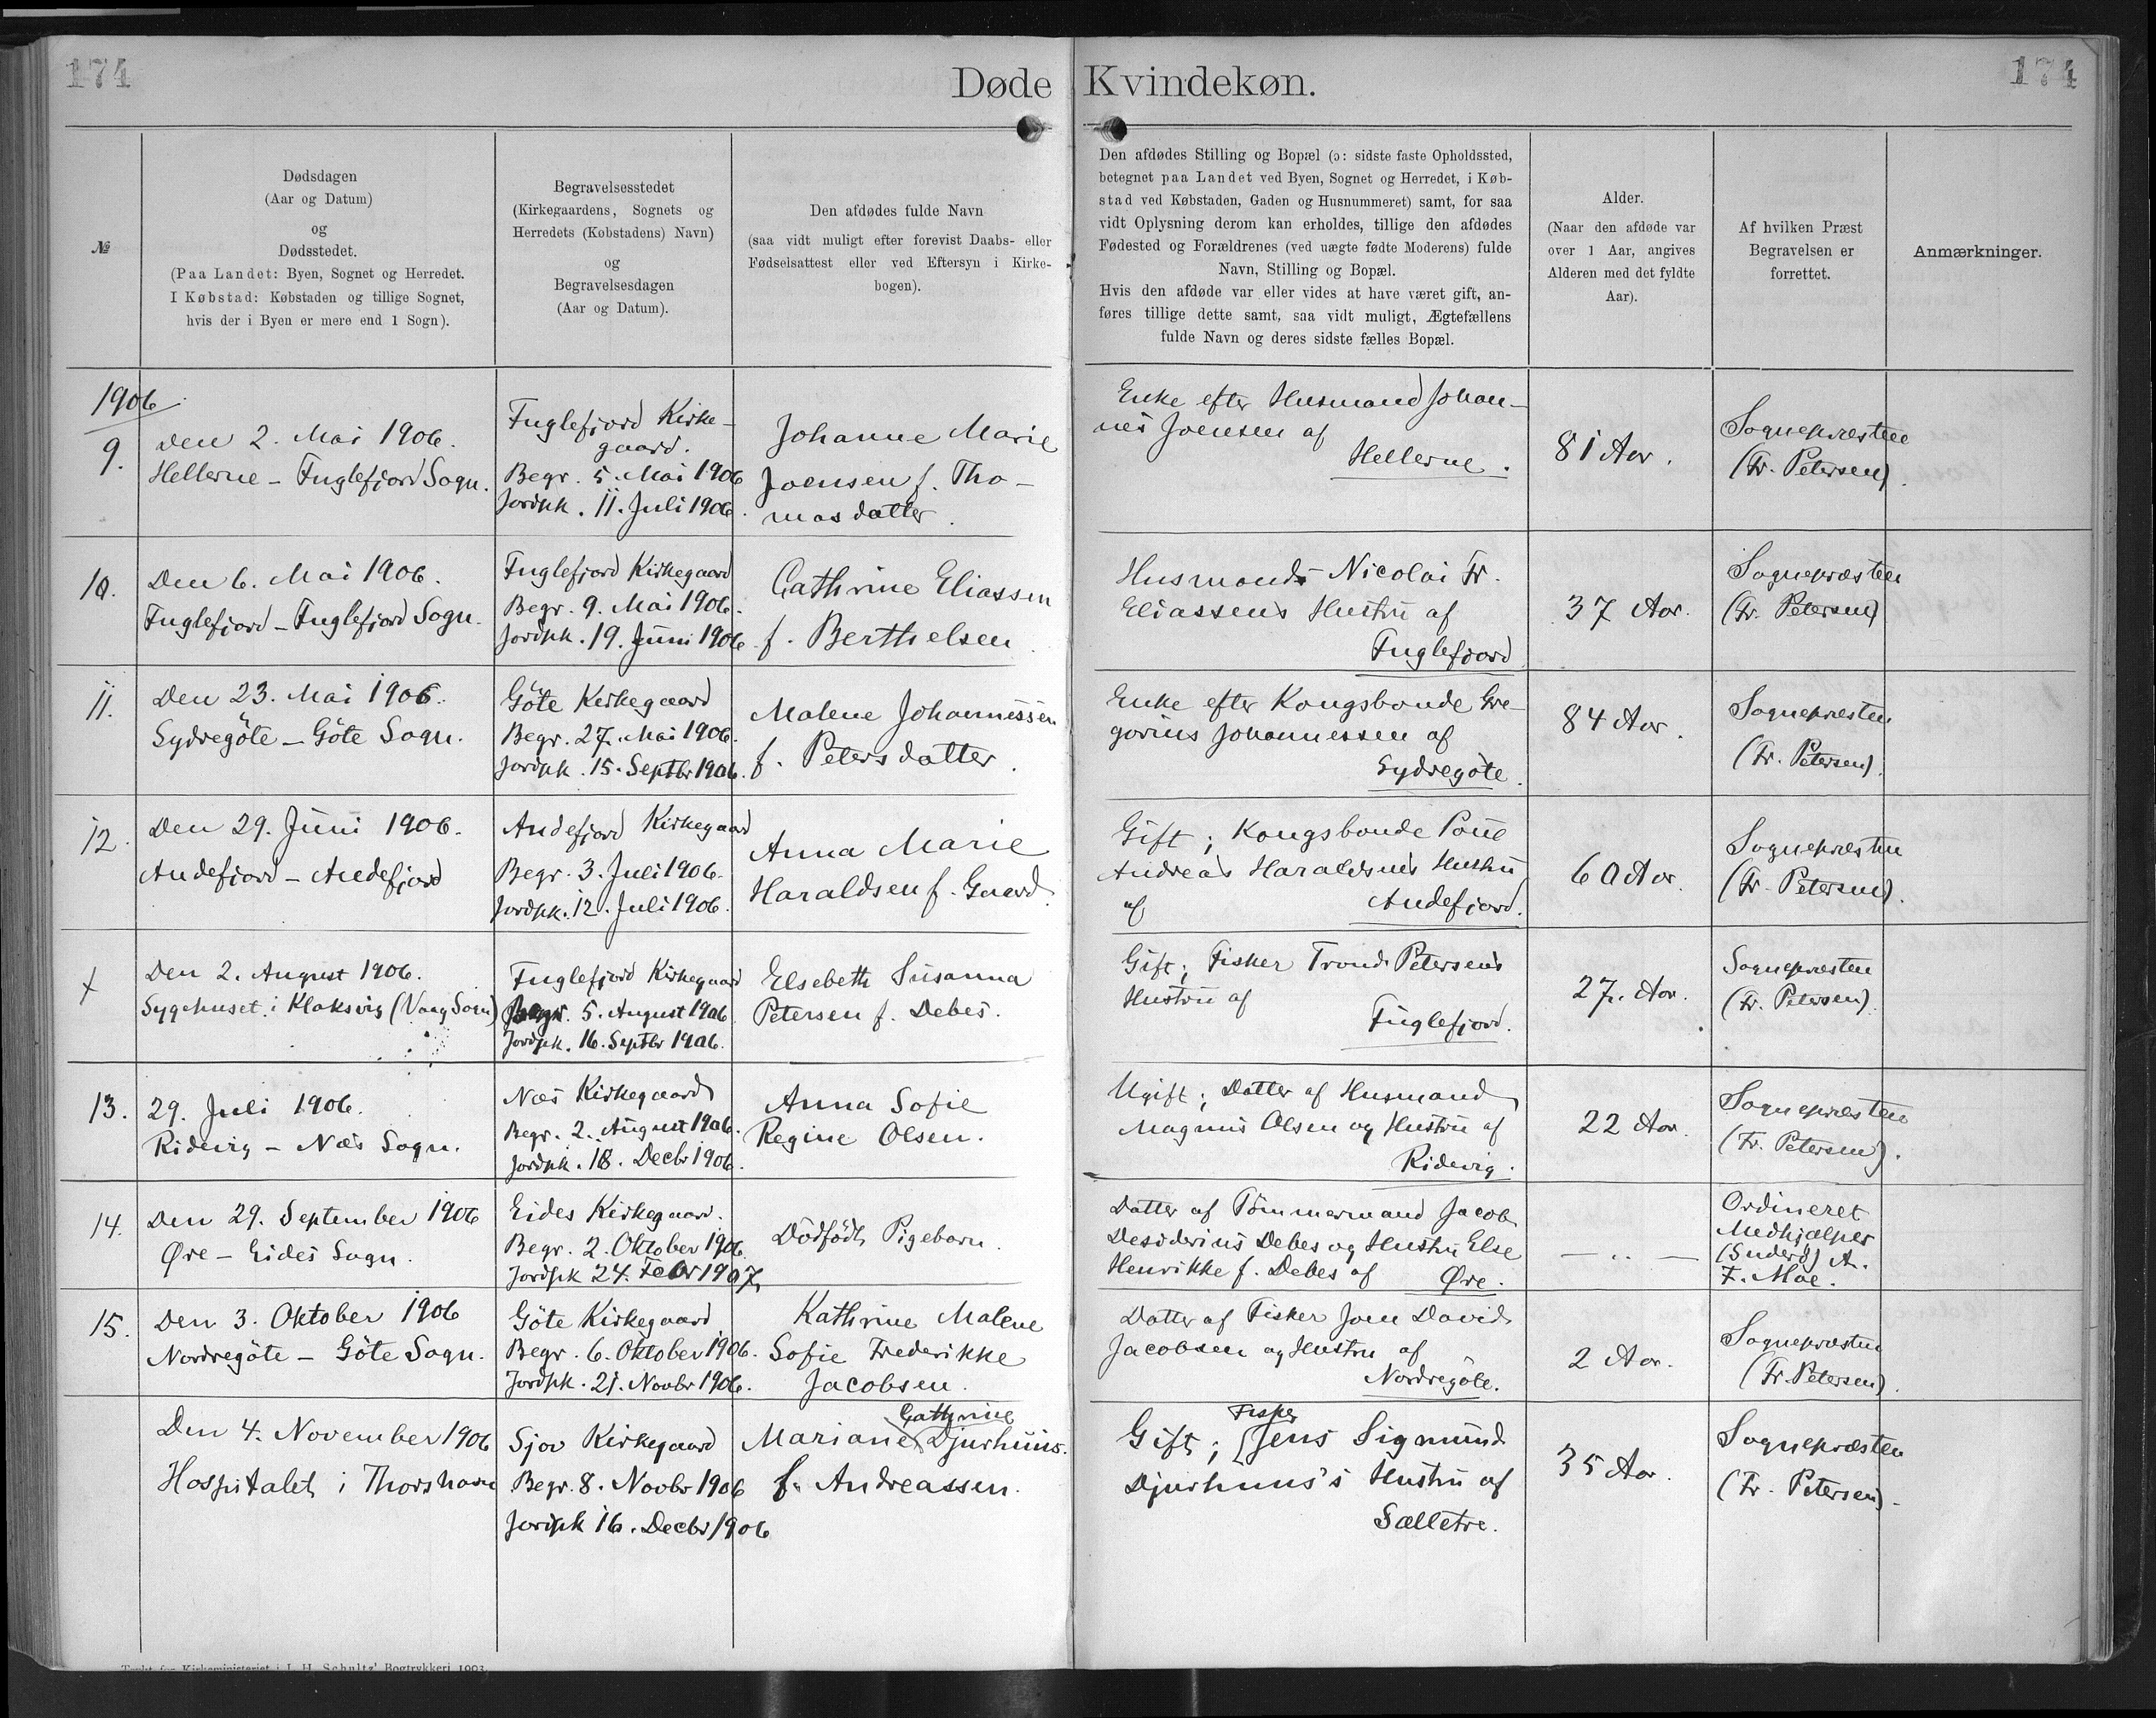 174
Døde Kvindekøn.
174
№
Dødsdagen
(Aar og Datum)
og
Dødsstedet.
(Paa Landet: Byen, Sognet og Herredet.
I Købstad: Købstaden og tillige Sognet,
hvis der i Byen er mere end 1 Sogn).
Begravelsesstedet
(Kirkegaardens, Sognets og
Herredets (Købstadens) Navn)
og
Begravelsesdagen
(Aar og Datum).
Den afdødes fulde Navn
(saa vidt muligt efter forevist Daabs- eller
Fødselsattest eller ved Eftersyn i Kirke-
bogen).
Den afdødes Stilling og Bopæl (ɔ: sidste faste Opholdssted,
betegnet paa Landet ved Byen, Sognet og Herredet, i Køb-
stad ved Købstaden, Gaden og Husnummeret) samt, for saa
vidt Oplysning derom kan erholdes, tillige den afdødes
Fødested og Forældrenes (ved uægte fødte Moderens) fulde
Navn, Stilling og Bopæl.
Hvis den afdøde var eller vides at have været gift, an-
føres tillige dette samt, saa vidt muligt, Ægtefællens
fulde Navn og deres sidste fælles Bopæl.
Alder.
(Naar den afdøde var
over 1 Aar, angives
Alderen med det fyldte
Aar).
Af hvilken Præst
Begravelsen er
forrettet.
Anmærkninger.
1906
9.
Den 2. Mai 1906.
Hellerne – Fuglefjord Sogn.
Fuglefjord Kirke-
gaard.
Begr. 5. Mai 1906
Jordpk. 11. Juli 1906.
Johanne Marie
Joensen f. Tho-
masdatter.
Enke efter Husmand Johan-
nes Joensen af
Hellerne.
81 Aar.
Sognepræsten
(Fr. Petersen).
10.
Den 6. Mai 1906.
Fuglefjord – Fuglefjord Sogn.
Fuglefjord Kirkegaard
Begr. 9. Mai 1906.
Jordpk. 19. Juni 1906
Cathrine Eliassen
f. Berthelsen.
Husmand Nicolai Fr.
Eliassens Hustru af
Fuglefjord
37 Aar.
Sognepræsten
(Fr. Petersen)
11.
Den 23. Mai 1906.
Sydregöte – Göte Sogn.
Göte Kirkegaard
Begr. 27. Mai 1906.
Jordpk. 15. Septbr 1906.
Malene Johannessen
f. Petersdatter.
Enke efter Kongsbonde Gre-
gorius Johannessen af
Sydregöte.
84 Aar.
Sognepræsten
(Fr. Petersen).
12.
Den 29. Juni 1906.
Andefjord – Andefjord
Andefjord Kirkegaard
Begr. 3. Juli 1906.
Jordpk. 12. Juli 1906.
Anna Marie
Haraldsen f. Gaard.
Gift; Kongsbonde Poul
Andreas Haraldsens Hustru
af Andefjord.
60 Aar.
Sognepræsten
(Fr. Petersen).
+
Den 2. August 1906.
Sygehuset i Klaksvig (Vaag Sogn)
Fuglefjord Kirkegaard
Begr. 5. August 1906
Jordpk. 16. Septbr 1906.
Elsebeth Susanna
Petersen f. Debes.
Gift; Fisker Trond Petersens
Hustru af
Fuglefjord.
27. Aar.
Sognepræsten
(Fr. Petersen)
13.
29. Juli 1906.
Ridevig – Næs Sogn.
Næs Kirkegaard
Begr. 2. August 1906.
Jordpk. 18. Decbr 1906.
Anna Sofie
Regine Olsen.
Ugift; Datter af Husmand
Magnus Olsen og Hustru af
Ridevig.
22 Aar.
Sognepræsten
(Fr. Petersen).
14.
Den 29. September 1906
Øre – Eides Sogn.
Eides Kirkegaard.
Begr. 2. Oktober 1906.
Jordpk 24. Febr 1907.
Dödfödt Pigebarn.
Datter af Tömmermand Jacob
Desiderius Debes og Hustru Else
Henrikke f. Debes af Øre.
– „ –
Ordineret
Medhjælper
(Suderø) A.
F. Moe.
15.
Den 3. Oktober 1906
Nordregöte – Göte Sogn.
Göte Kirkegaard
Begr. 6. Oktober 1906.
Jordpk. 21. Novbr 1906.
Kathrine Malene
Sofie Frederikke
Jacobsen.
Datter af Fisker Joen David
Jacobsen og Hustru af
Nordregöte.
2 Aar.
Sognepræsten
(Fr. Petersen).
Den 4. November 1906
Hospitalet i Thorshavn
Sjov Kirkegaard
Begr. 8. Novbr 1906
Jordpk 16. Decbr 1906
Cathrine
Mariane Djurhuus.
f. Andreassen.
Fisker
Gift; Jens Sigmund
Djurhuus's Hustru af
Sælletre.
35 Aar.
Sognepræsten
(Fr. Petersen).